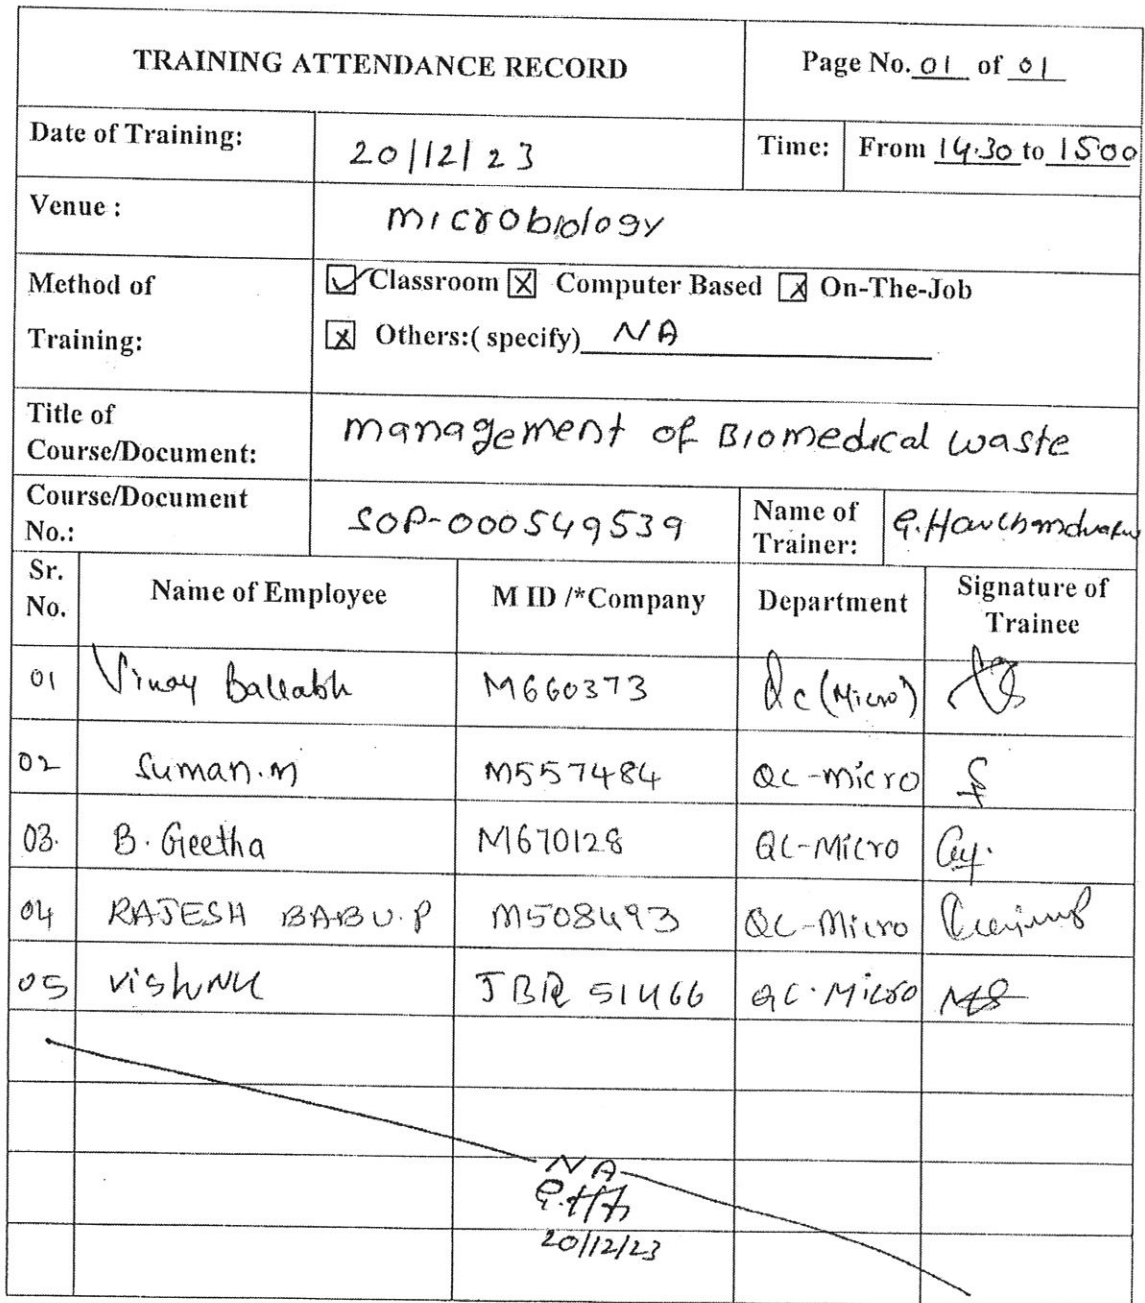 TRAINING ATTENDANCE RECORD
Page No. 01 of 01
Date of Training:
20/12/23
Time:
From 14.30 to 15:00
Venue :
microbiology
Method of
Training:
Classroom Computer Based On-The-Job
Others:( specify) NA
Title of
Course/Document:
management of Biomedical waste
Course/Document
No.:
SOP-000549539
Name of
Trainer:
Sr.
No.
Name of Employee
M ID /*Company
Department
Signature of
Trainee
01 Vinay Ballabh M660373 Qc (Micro)
02 Suman.m M557484 QC-micro
03. B. Geetha M670128 QC-Micro
04 RAJESH BABU.P M508493 QC-Micro
05 vishNu JBR 51466 QC.Micro
NA
20/12/23